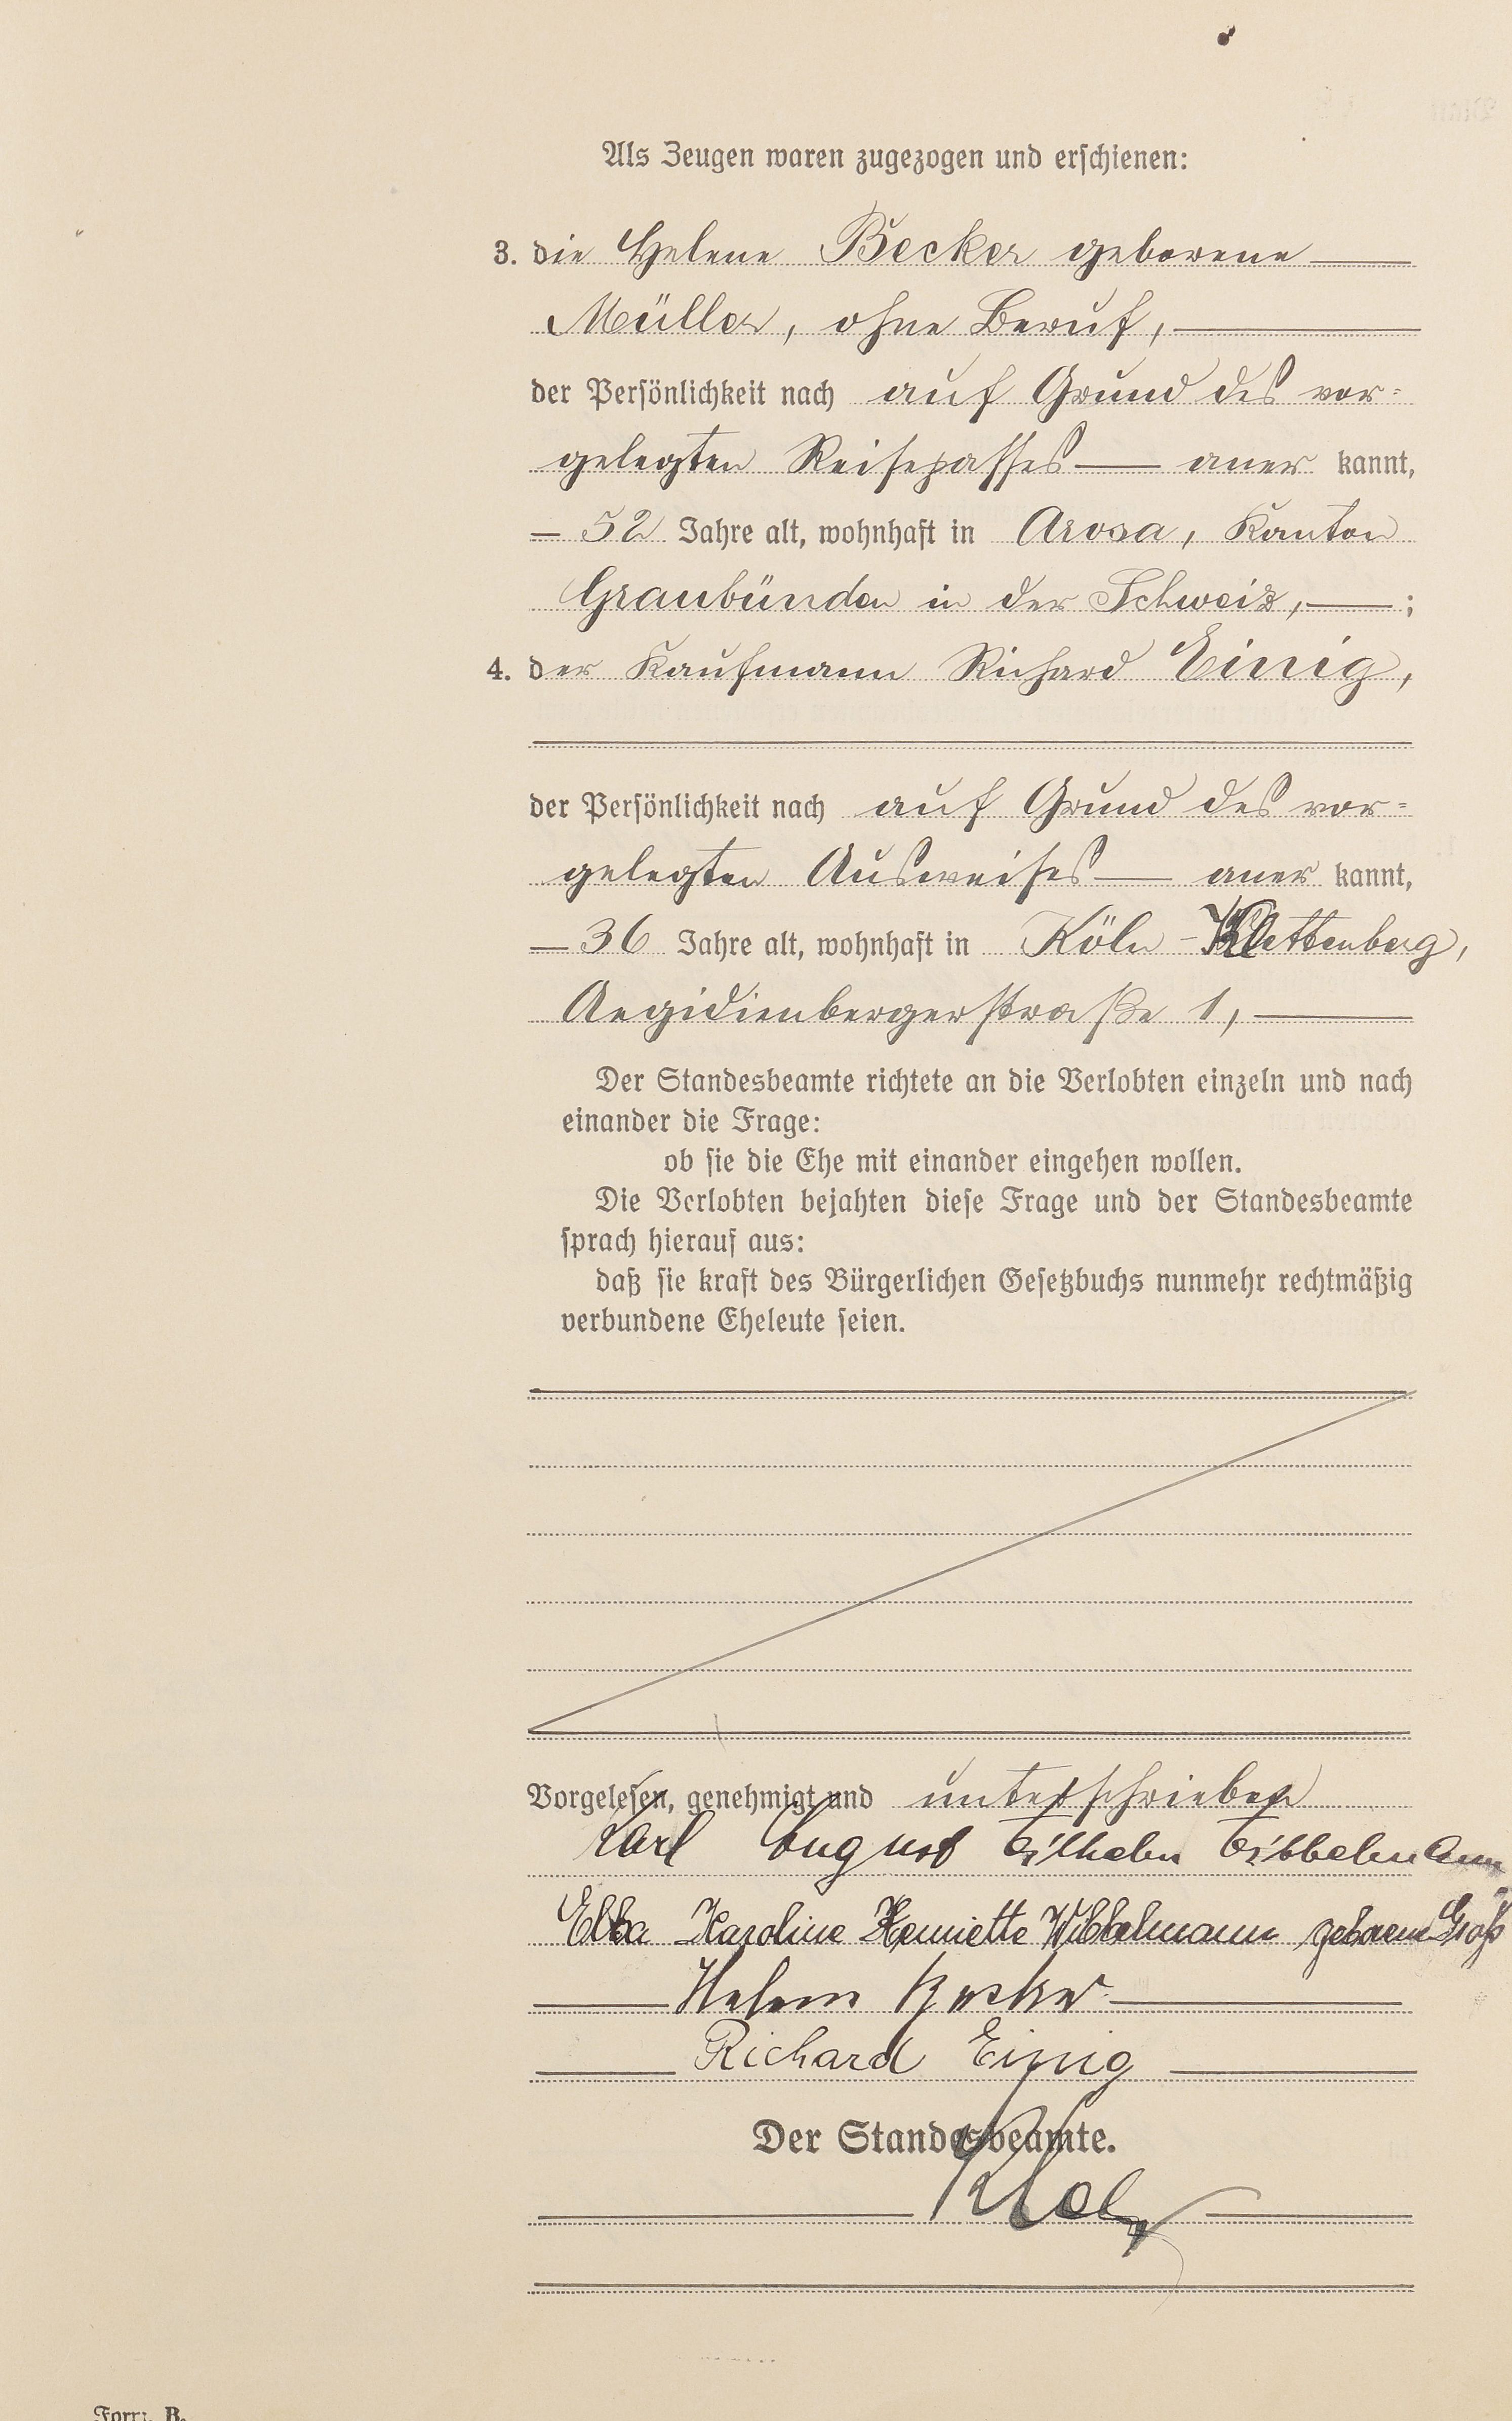 Als Zeugen waren zugezogen und erschienen:
3. die Helene Becker geborene
Müller, ohne Beruf,
der Persönlichkeit nach auf Grund des vor-
gelegten Reisepasses — aner kannt,
— 52 Jahre alt, wohnhaft in Arosa, Kanton
Graubünden in der Schweiz, — ;
4. der Kaufmann Richard Einig,
der Persönlichkeit nach auf Grund des vor-
gelegten Ausweises — aner kannt,
— 36 Jahre alt, wohnhaft in Köln-Klettenberg,
Aegidienbergerstraße 1, —
Der Standesbeamte richtete an die Verlobten einzeln und nach
einander die Frage:
ob sie die Ehe mit einander eingehen wollen.
Die Verlobten bejahten diese Frage und der Standesbeamte
sprach hierauf aus:
daß sie kraft des Bürgerlichen Gesetzbuchs nunmehr rechtmäßig
verbundene Eheleute seien.
Vorgelesen, genehmigt und unterschrieben
Karl August Wilhelm Wibbelmann
Ebba Karoline Henriette Wibbelmann geborene Groß
Helene Becker
Richard Einig
Der Standesbeamte.
Form. B.